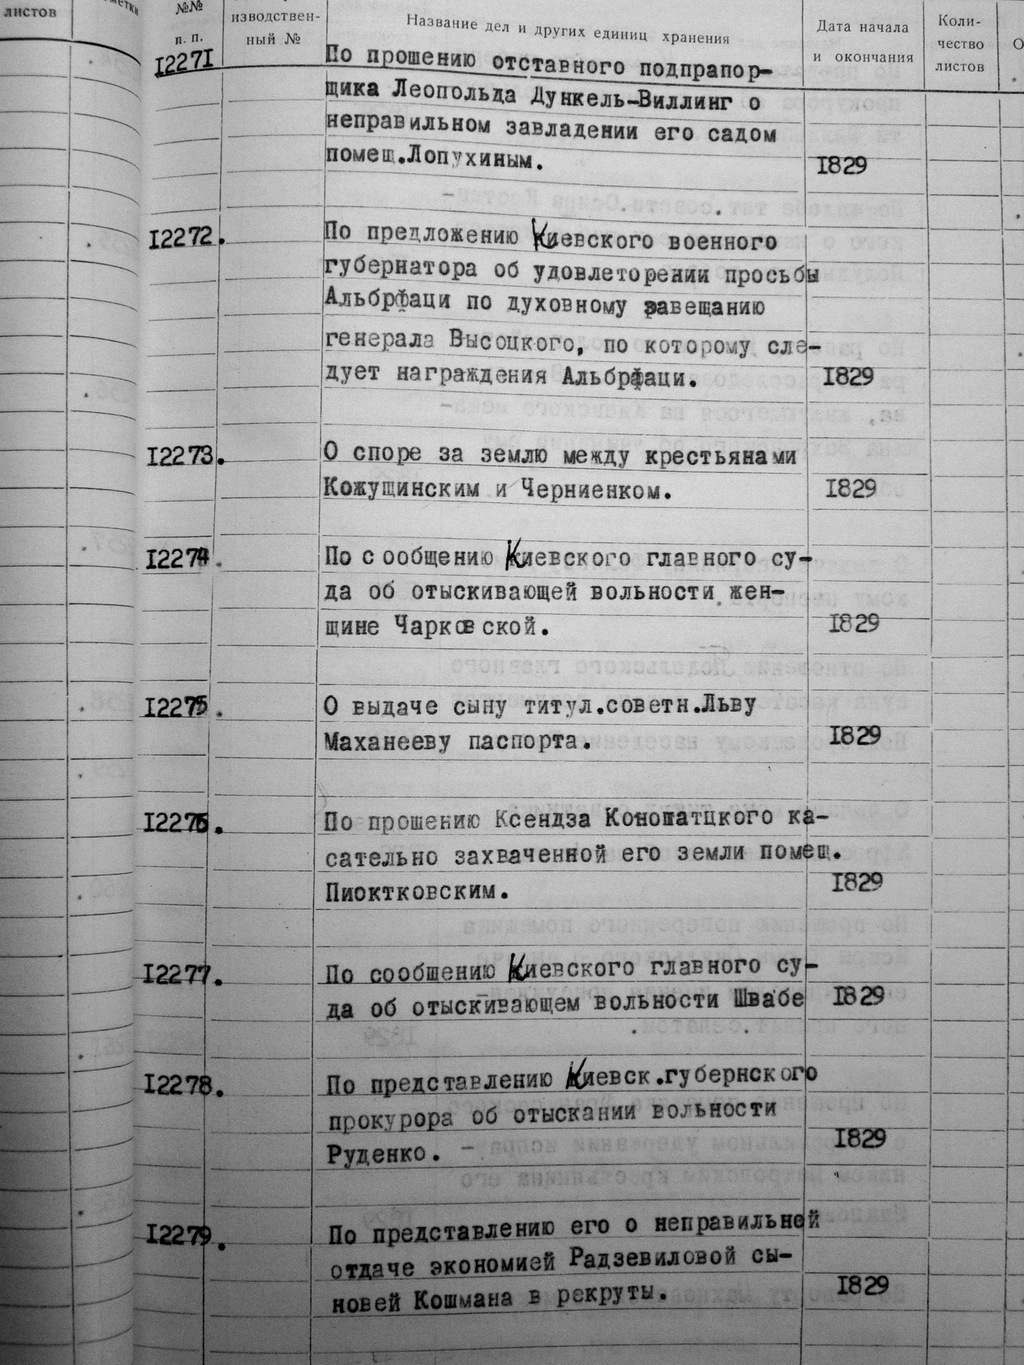 листов
№№
п. п.
изводствен-
ный №
Название дел и других единиц хранения
Дата начала
и окончания
Коли-
чество
листов
12271 По прошению отставного подпрапор-
щика Леопольда Дункель-Виллинг о
неправильном завладении его садом
помещ.Лопухиным. 1829
12272. По предложению Киевского военного
губернатора об удовлеторении просьбы
Альбрфаци по духовному завещанию
генерала Высоцкого, по которому сле-
дует награждения Альбрфаци. 1829
12273. О споре за землю между крестьянами
Кожущинским и Черниенком. 1829
12274. По с ообщению Киевского главного су-
да об отыскивающей вольности жен-
щине Чарковской. 1829
12275. О выдаче сыну титул.советн.Льву
Маханееву паспорта. 1829
12276. По прошению Ксендза Коношатцкого ка-
сательно захваченной его земли помещ.
Пиоктковским. 1829
12277. По сообшению Киевского главного су-
да об отыскивающем вольности Швабе 1829
12278. По представлению Киевск.губернского
прокурора об отыскании вольности
Руденко. 1829
12279. По представлению его о неправильней
отдаче экономией Радзевиловой сы-
новей Кошмана в рекруты. 1829